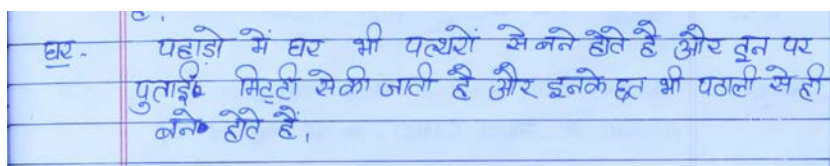 घर - पहाडो में घर भी पत्थरों से बने होते है और इन पर
पुताई मिट्टी से की जाती है और इनके छत भी पठाली से ही
बने होते हैं,